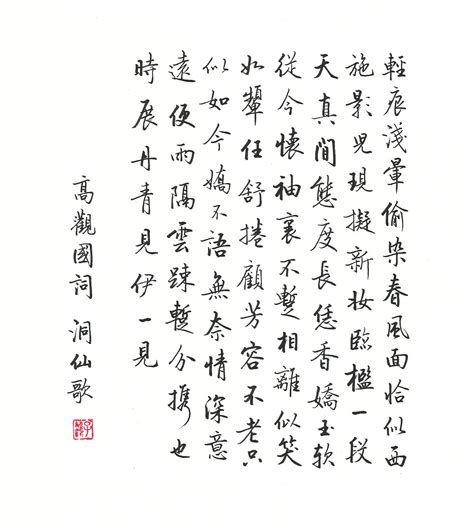 輕痕淺暈偷染春風面恰似西
施影兒現擬新妆臨檻一段
天真間態度長恁香嬌玉軟
從今懷袖裏不暫相離似笑
如顰任舒捲顧芳容不老只
似如今嬌不語無奈情深意
遠便雨隔雲踈暫分携也
時展丹青見伊一見
高觀國詞 洞仙歌